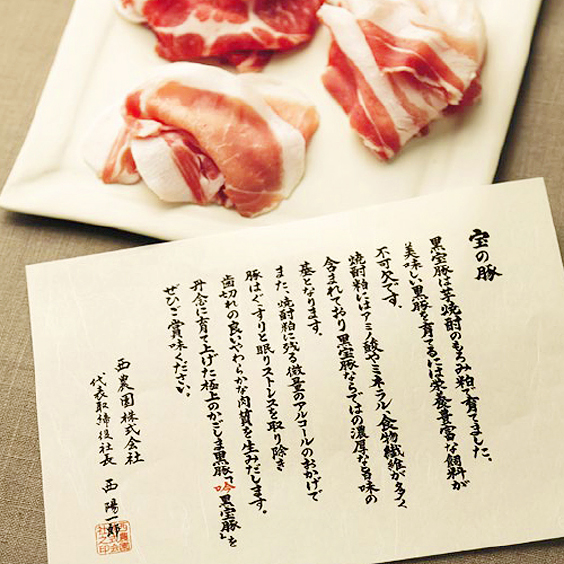 宝の豚
黒宝豚は芋焼酎のもろみ粕で育てました。
美味しい黒豚を育てるには栄養豊富な飼料が
不可欠です。
焼酎粕にはアミノ酸やミネラル、食物繊維が多く
含まれており黒宝豚ならではの濃厚な旨味の
基となります。
また、焼酎粕に残る微量のアルコールのおかげで
豚はぐっすりと眠りストレスを取り除き
歯切れの良いやわらかな肉質を生みだします。
丹念に育て上げた極上のかごしま黒豚「吟 黒宝豚」を
ぜひご賞味ください。
西農園株式会社
代表取締役社長 西 陽一郎